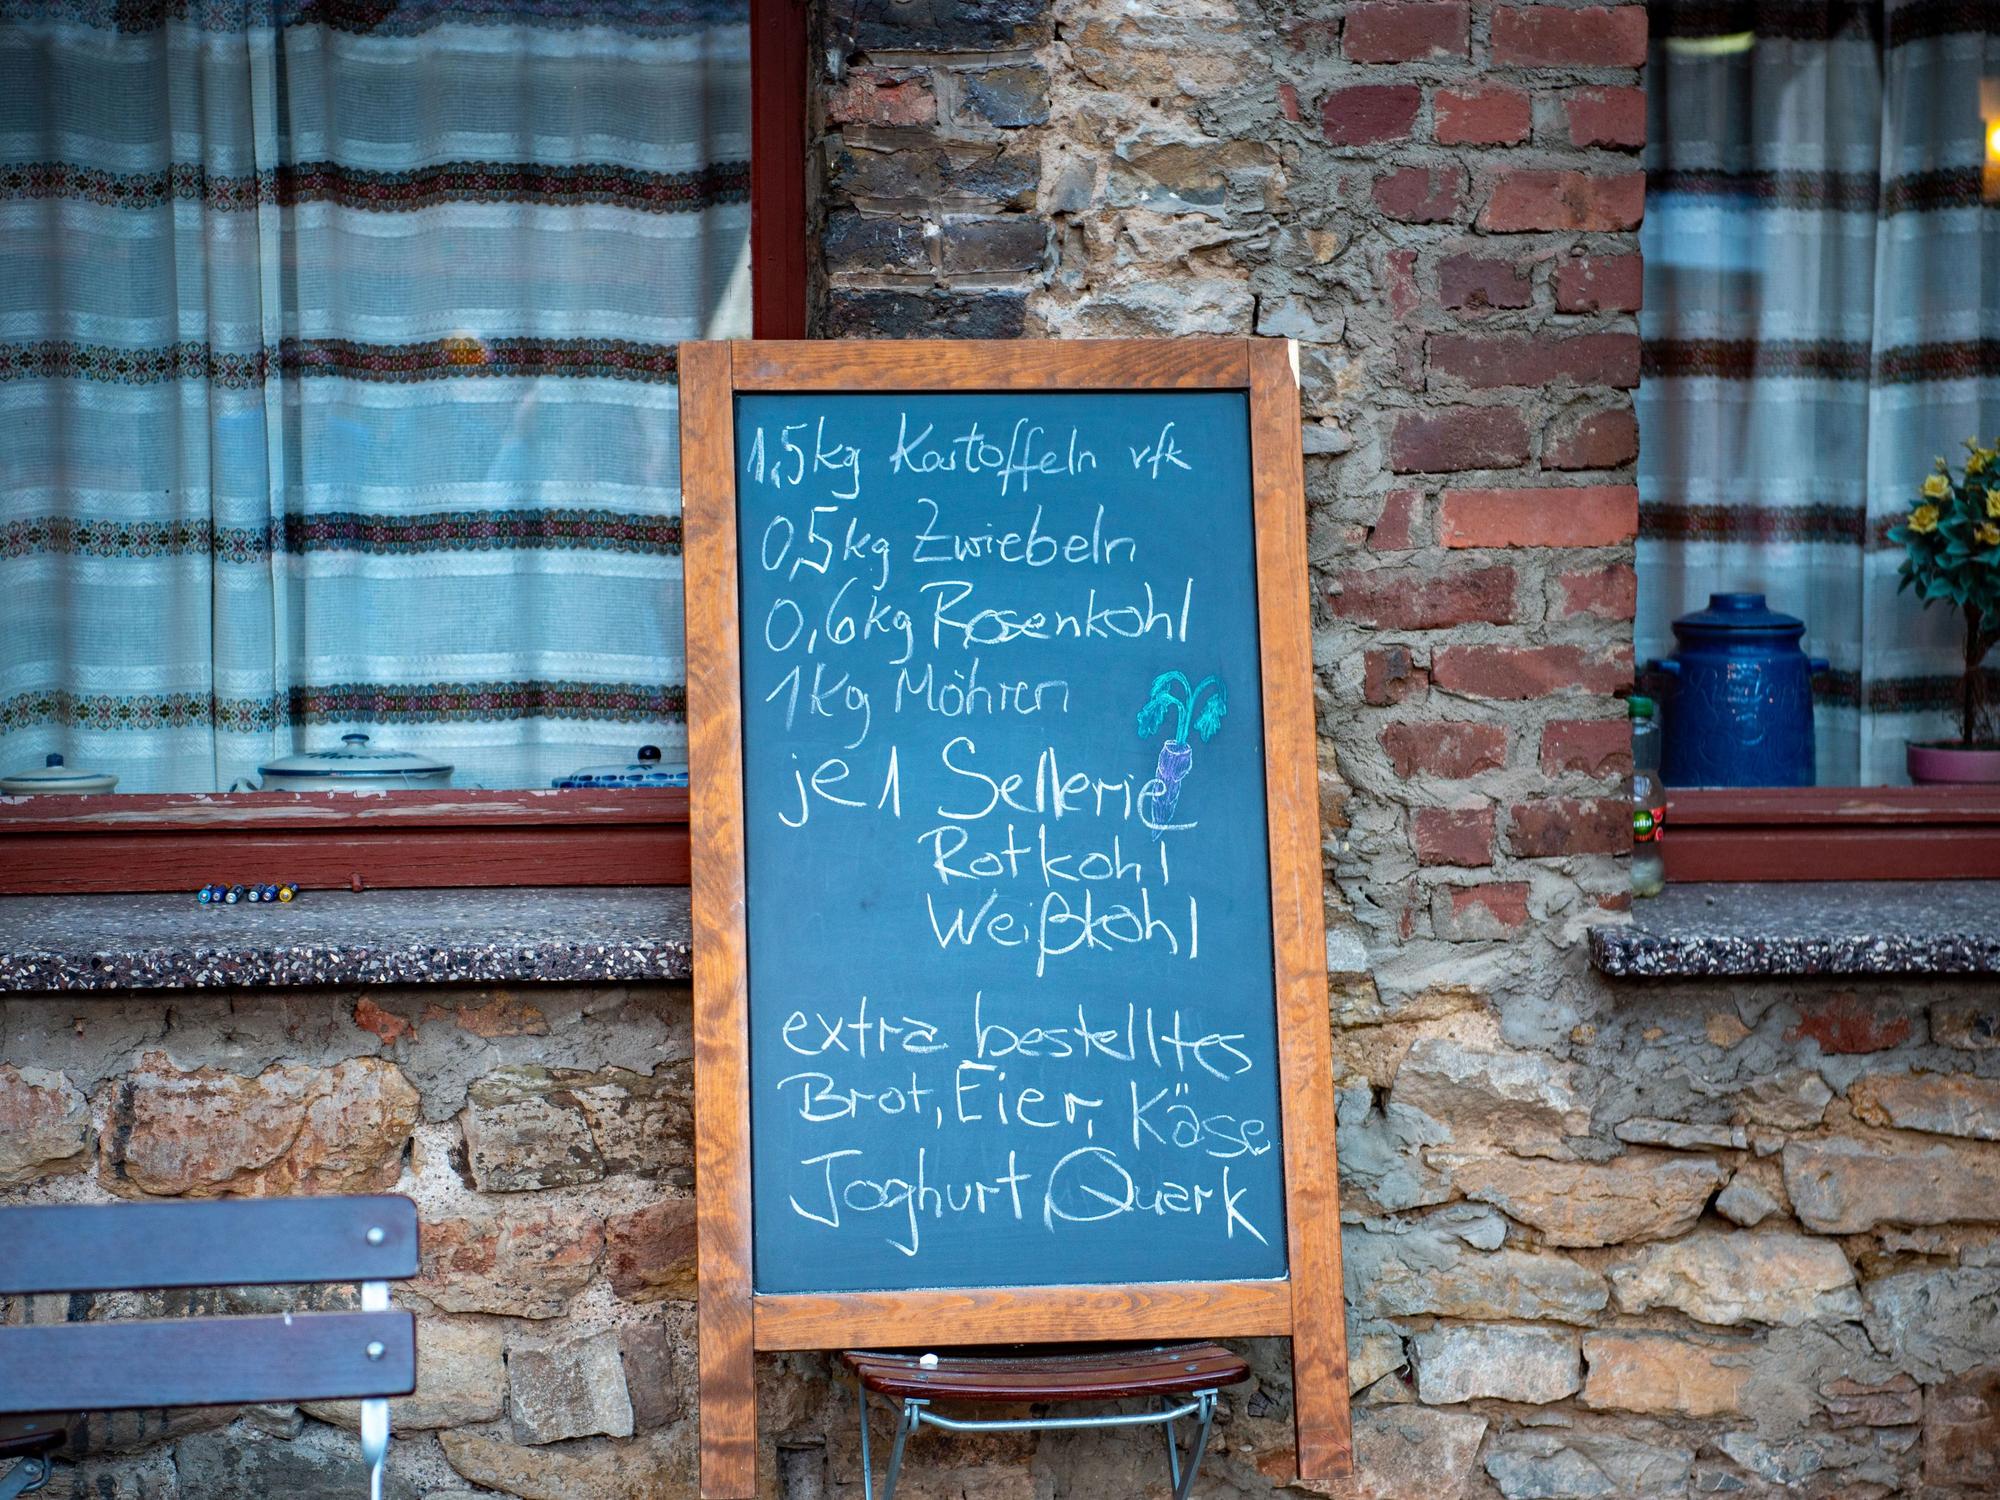 1,5kg Kartoffeln vfk
0,5kg Zwiebeln
0,6kg Rosenkohl
1kg Möhren
je 1 Sellerie
Rotkohl
Weißkohl
extra bestelltes
Brot, Eier, Käse
Joghurt Quark